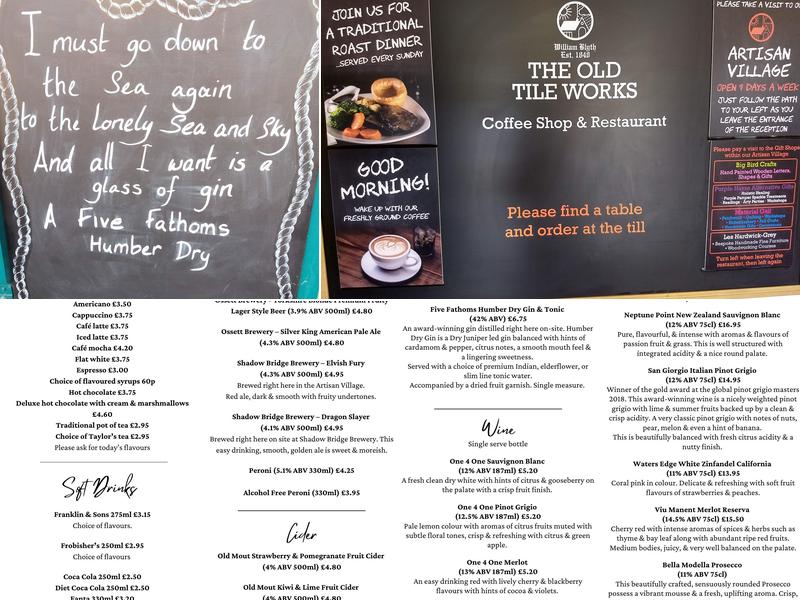 I must go down to
the Sea again
to the lonely Sea and Sky
And all I want is a
glass of gin
A Five Fathoms
Humber Dry
JOIN US FOR
A TRADITIONAL
ROAST DINNER
...SERVED EVERY SUNDAY
GOOD
MORNING!
WAKE UP WITH OUR
FRESHLY GROUND COFFEE
William Blyth
Est. 1840
THE OLD
TILE WORKS
Coffee Shop & Restaurant
Please find a table
and order at the till
PLEASE TAKE A VISIT TO OUR
ARTISAN
VILLAGE
OPEN 7 DAYS A WEEK
JUST FOLLOW THE PATH
TO YOUR LEFT AS YOU
LEAVE THE ENTRANCE
OF THE RECEPTION
Please pay a visit to the Gift Shops
within our Artisan Village
Big Bird Crafts
Hand Painted Wooden Letters,
Shapes & Gifts
Purple Haven Alternative Gifts
Material Gail
Les Hardwick-Grey
• Bespoke Handmade Fine Furniture
• Woodworking Courses
Turn left when leaving the
restaurant, then left again
Americano £3.50
Cappuccino £3.75
Café latte £3.75
Iced latte £3.75
Café mocha £4.20
Flat white £3.75
Espresso £3.00
Choice of flavoured syrups 60p
Hot chocolate £3.75
Deluxe hot chocolate with cream & marshmallows
£4.60
Traditional pot of tea £2.95
Choice of Taylor's tea £2.95
Please ask for today's flavours
Soft Drinks
Franklin & Sons 275ml £3.15
Choice of flavours.
Frobisher's 250ml £2.95
Choice of flavours
Coca Cola 250ml £2.50
Diet Coca Cola 250ml £2.50
Fanta 330ml £3.20
Ossett Brewery - Yorkshire Blonde Premium Fruity
Lager Style Beer (3.9% ABV 500ml) £4.80
Ossett Brewery – Silver King American Pale Ale
(4.3% ABV 500ml) £4.80
Shadow Bridge Brewery – Elvish Fury
(4.3% ABV 500ml) £4.95
Brewed right here in the Artisan Village.
Red ale, dark & smooth with fruity undertones.
Shadow Bridge Brewery – Dragon Slayer
(4.1% ABV 500ml) £4.95
Brewed right here on site at Shadow Bridge Brewery. This
easy drinking, smooth, golden ale is sweet & moreish.
Peroni (5.1% ABV 330ml) £4.25
Alcohol Free Peroni (330ml) £3.95
Cider
Old Mout Strawberry & Pomegranate Fruit Cider
(4% ABV 500ml) £4.80
Old Mout Kiwi & Lime Fruit Cider
(4% ABV 500ml) £4.80
Five Fathoms Humber Dry Gin & Tonic
(42% ABV) £6.75
An award-winning gin distilled right here on-site. Humber
Dry Gin is a Dry Juniper led gin balanced with hints of
cardamom & pepper, citrus notes, a smooth mouth feel &
a lingering sweetness.
Served with a choice of premium Indian, elderflower, or
slim line tonic water.
Accompanied by a dried fruit garnish. Single measure.
Wine
Single serve bottle
One 4 One Sauvignon Blanc
(12% ABV 187ml) £5.20
A fresh clean dry white with hints of citrus & gooseberry on
the palate with a crisp fruit finish.
One 4 One Pinot Grigio
(12.5% ABV 187ml) £5.20
Pale lemon colour with aromas of citrus fruits muted with
subtle floral tones, crisp & refreshing with citrus & green
apple.
One 4 One Merlot
(13% ABV 187ml) £5.20
An easy drinking red with lively cherry & blackberry
flavours with hints of cocoa & violets.
Neptune Point New Zealand Sauvignon Blanc
(12% ABV 75cl) £16.95
Pure, flavourful, & intense with aromas & flavours of
passion fruit & grass. This is well structured with
integrated acidity & a nice round palate.
San Giorgio Italian Pinot Grigio
(12% ABV 75cl) £14.95
Winner of the gold award at the global pinot grigio masters
2018. This award-winning wine is a nicely weighted pinot
grigio with lime & summer fruits backed up by a clean &
crisp acidity. A very classic pinot grigio with notes of nuts,
pear, melon & even a hint of banana.
This is beautifully balanced with fresh citrus acidity & a
nutty finish.
Waters Edge White Zinfandel California
(11% ABV 75cl) £13.95
Coral pink in colour. Delicate & refreshing with soft fruit
flavours of strawberries & peaches.
Viu Manent Merlot Reserva
(14.5% ABV 75cl) £15.50
Cherry red with intense aromas of spices & herbs such as
thyme & bay leaf along with abundant ripe red fruits.
Medium bodies, juicy, & very well balanced on the palate.
Bella Modella Prosecco
(11% ABV 75cl)
This beautifully crafted, sensuously rounded Prosecco
possess a vibrant mousse & a fresh, uplifting aroma. Crisp,